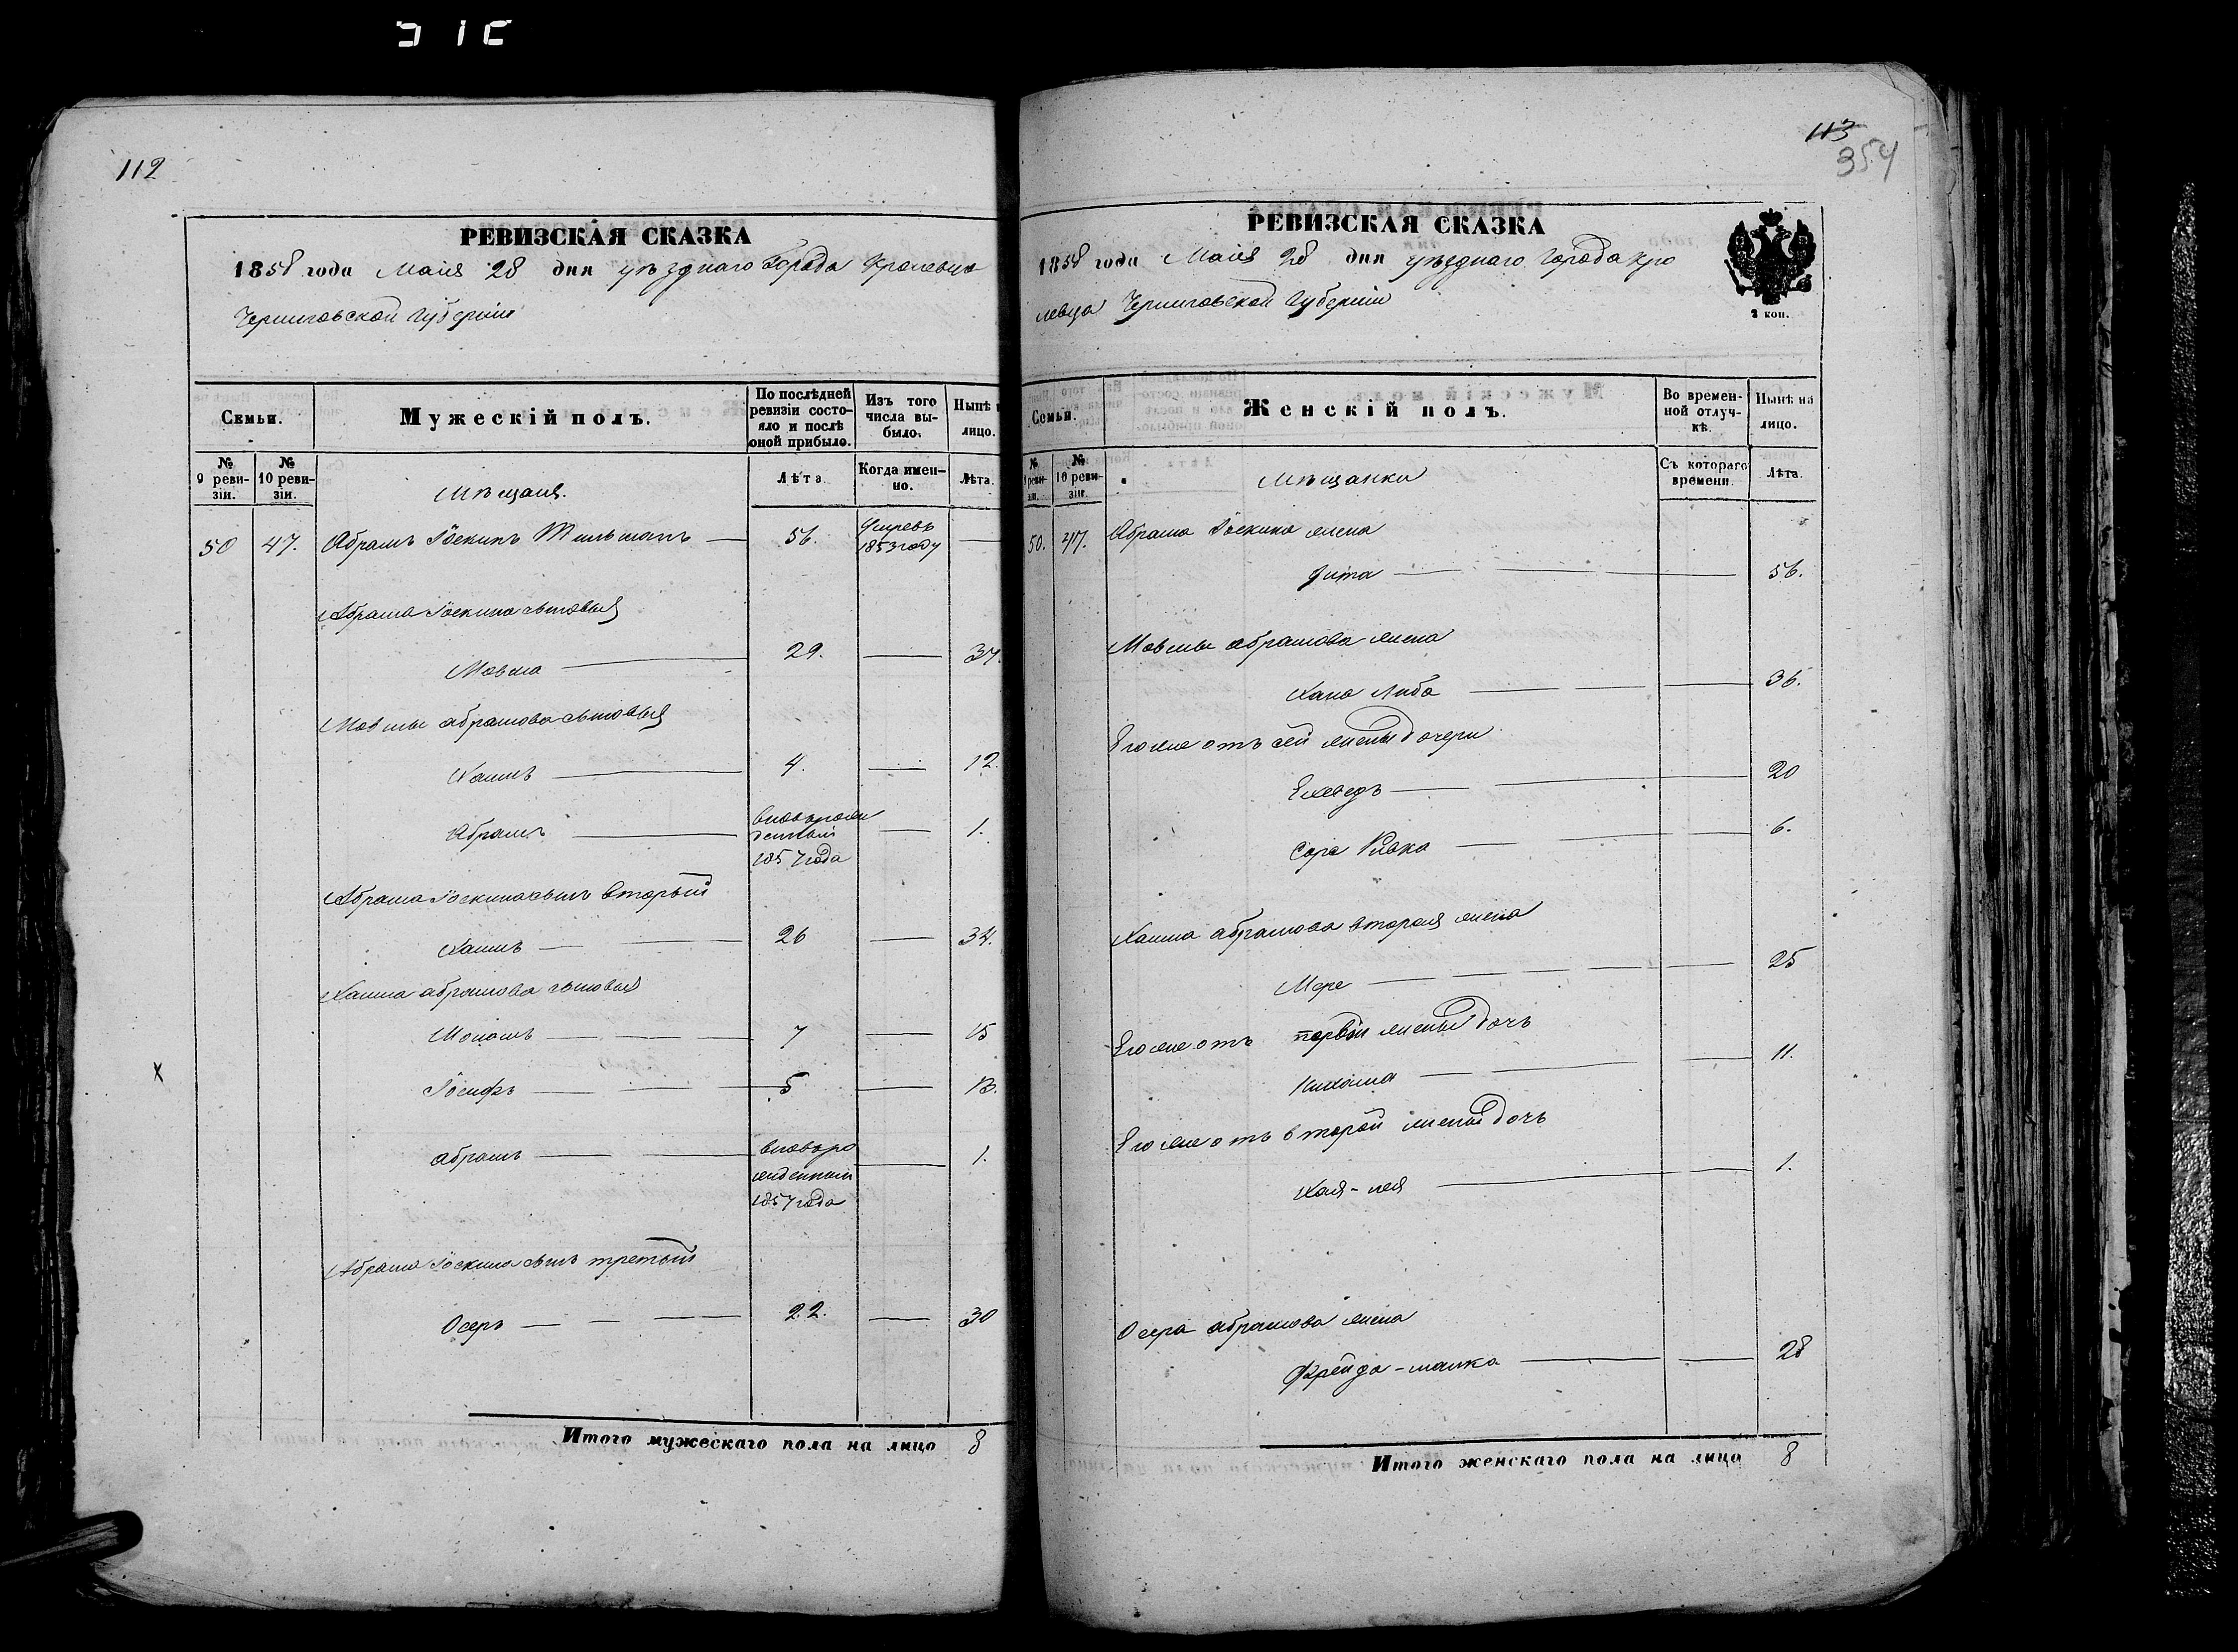 112
РЕВИЗСКАЯ СКАЗКА
1858 года Маія 28 дня уѣзднаго Города Кролевца
Черниговской Губерніи
Семьи.
Мужескій полъ.
По послѣдней ревизіи состояло и послѣ оной прибыло.
Изъ того числа выбыло.
Нынѣ
лицо.
№ 9 ревизіи.
№ 10 ревизіи.
Мѣщане.
Лѣта
Когда именно.
Лѣта.
50 47. Абрамъ Іоскинъ 56. Умревъ 1853 году
Абрама Іоскина сыновья
Мовша 29. 37.
Мовши Абрамова сыновья
Хаимъ 4. 12.
Абрамъ вновьрожденный 1857 года 1.
Абрама Іоскина сынъ вторый
Хаимъ 26 34.
Хаима Абрамова сыновья
7 15
Іосифъ 5 13.
Абрамъ вновьрожденный 1857 года 1.
Абрама Іоскина сынъ третый
Осеръ 22. 30
Итого мужескаго пола на лицо 8
113
354
РЕВИЗСКАЯ СКАЗКА
1858 года Маія 28 дня уѣзднаго Города Кро
левца Черниговской Губерніи
2 коп.
Семьи.
Женскій полъ.
Во временной отлучкѣ.
Нынѣ на лицо.
№ 9 ревизіи.
№ 10 ревизіи.
Мѣщанки
Съ котораго времени.
Лѣта.
50. 47. Абрама Іоскина жена
56.
Мовши Абрамова жена
Хана Либа 36.
Его же отъ сей жены дочери
Еховедъ 20
Сора Ривка 6.
Хаима Абрамова вторая жена
Мере 25
Его же отъ первой жены дочь
11.
Его же отъ второй жены дочь
Хая-лея 1.
Осера Абрамова жена
Фрейда-малка 28
Итого женскаго пола на лицо 8